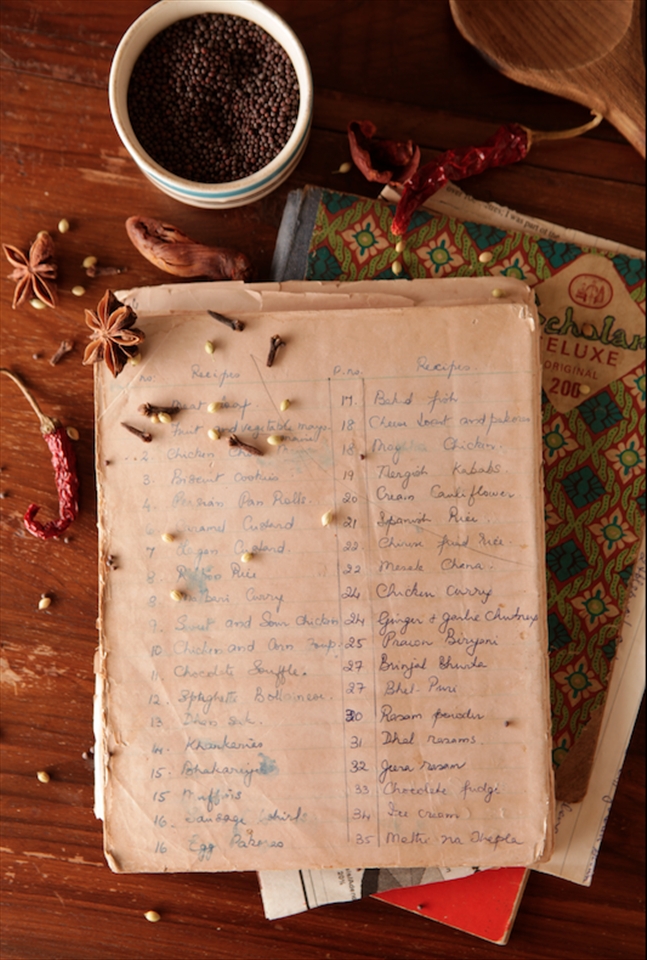 no. Recipes
Meat Loaf
Fruit and vegetable mayo-
nnaise
2. Chicken
3. Biscuit Cookies
4. Persian Pan Rolls.
6 Caramel Custard
7 Custard.
8 Rice
8 Curry
9. Sweet and Sour Chicken
10. Chicken and Corn Soup.
11. Chocolate Souffle.
12. Spaghetti
13. Dhan Sak.
14. Khankaries
15. Bhakariyu
15 Muffins
16. Sausage
16 Egg Pakoras
P.no. Recipes.
17. Baked fish
18 Cheese toast and pakoras
18 Chicken.
19 Nergish Kababs.
20 Cream Cauliflower
21 Spanish Rice.
22 Chinese fried Rice.
22 Masala Chana.
24 Chicken Curry
24 Ginger & Garlic Chutneys
25 Prawn Biryani
27 Brinjal Bhurta
27 Bhel-Puri
30 Rasam powder
31 Dhal rasams.
32 Jeera rasam
33 Chocolate fudge
34 Ice cream
35 Methi na Thepla
I was part of the
Scholar
DELUXE
ORIGINAL
200